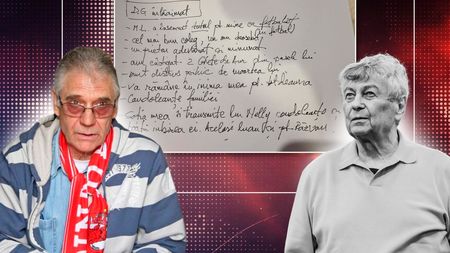 D.G. întrăinat
- M.L. a însemnat totul pt mine ca fotbalist
(în fotbal)
- cel mai bun coleg, om
- un prieten adevărat și minunat
- am câștigat 2 Ghete de Aur din pasele lui
- sunt distrus psihic de moartea lui
- va rămâne în inima mea pt totdeauna
Condoleanțe familiei
Soția mea îi transmite lui Nelly condoleanțe
toată iubirea ei. Același lucru și pt Răzvan